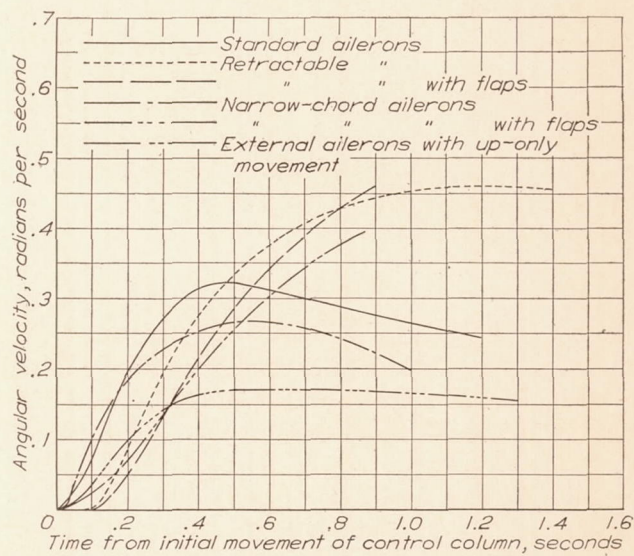 .7
.6
.5
.4
.3
.2
.1
0
Angular velocity, radians per second
Standard ailerons
Retractable "
" " with flaps
Narrow-chord ailerons
" " " with flaps
External ailerons with up-only
movement
.2 .4 .6 .8 1.0 1.2 1.4 1.6
Time from initial movement of control column, seconds